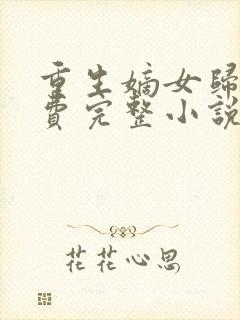 重生嫡女歸
費完整小說
花花心思